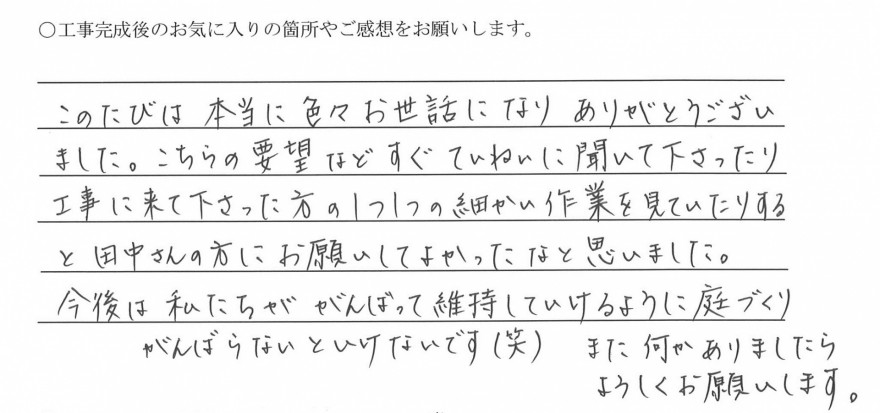 ○工事完成後のお気に入りの箇所やご感想をお願いします。
このたびは 本当に色々お世話になり ありがとうござい
ました。こちらの要望などすぐていねいに聞いて下さったり
工事に来て下さった方の1つ1つの細かい作業を見ていたりする
と田中さんの方にお願いしてよかったなと思いました。
今後は私たちが がんばって維持していけるように庭づくり
がんばらないといけないです(笑) また何かありましたら
ようしくお願いします。